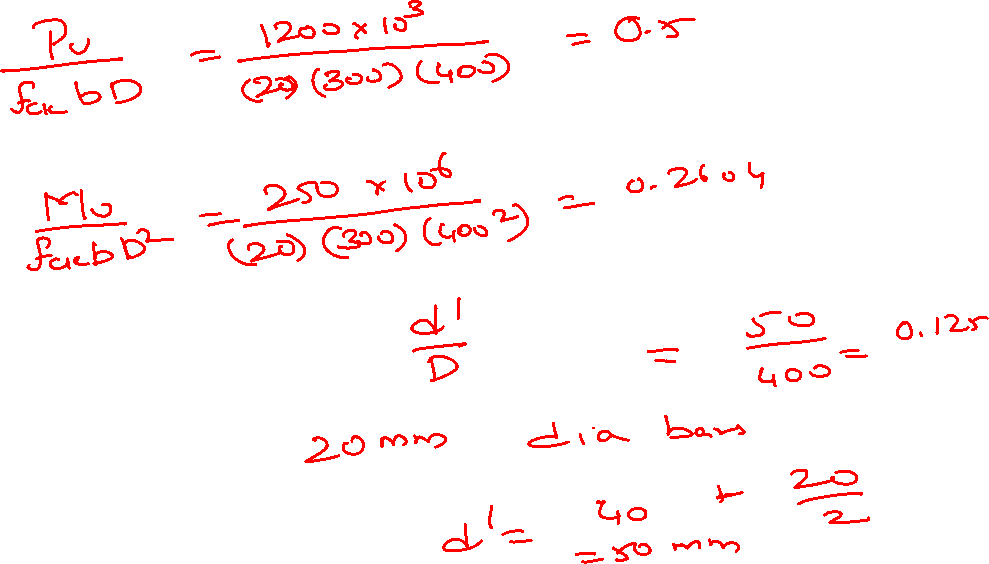 Pu/(fck bD) = 1200 × 10³/((20)(300)(400)) = 0.5
Mu/(fck bD²) = 250 × 10⁶/((20)(300)(400²)) = 0.2604
d'/D = 50/400 = 0.125
20 mm dia bars
d' = 40 + 20/2
= 50 mm